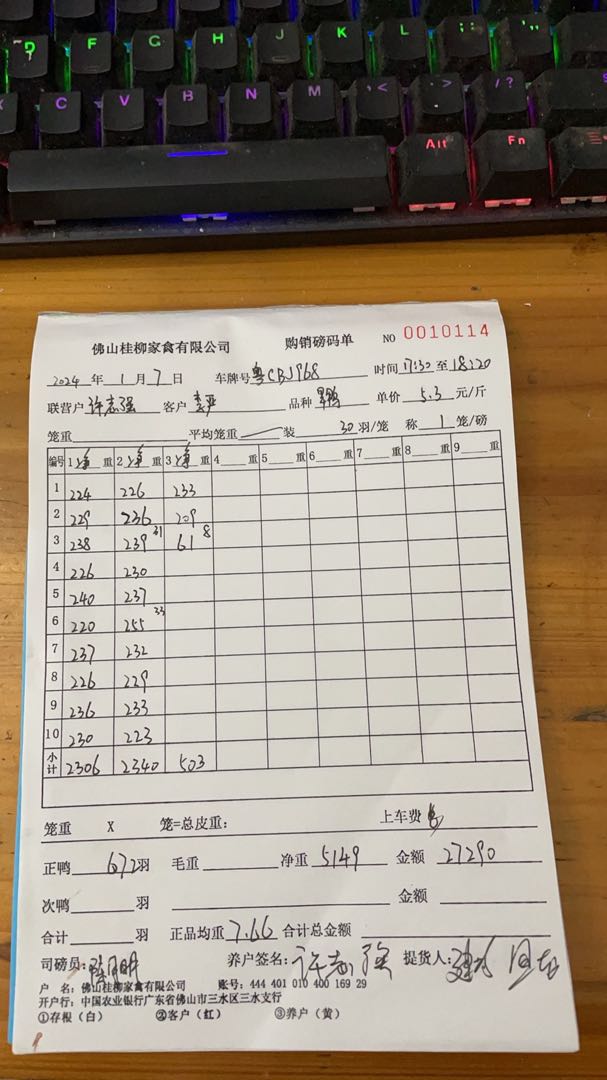 D F G H J K L : ; " '
C V B N M < , > . ? /
Alt Fn
佛山桂柳家禽有限公司 购销磅码单 NO 0010114
2024 年 1 月 7 日 车牌号 粤CBJ968 时间 17:30 至 18:20
联营户 许志强 客户 品种 单价 5.3 元/斤
笼重 平均笼重 装 30 羽/笼 称 1 笼/磅
编号 1 净 重 2 净 重 3 净 重 4 重 5 重 6 重 7 重 8 重 9 重
1 224 226 233
2 229 236 209
3 238 239 31 61 8
4 226 230
5 240 237
6 220 255 33
7 237 232
8 226 229
9 236 233
10 230 223
小计 2306 2340 503
笼重 X 笼=总皮重: 上车费
正鸭 672 羽 毛重 净重 5149 金额 27290
次鸭 羽 金额
合计 羽 正品均重 7.66 合计总金额
司磅员: 养户签名: 许志强 提货人:
户 名: 佛山桂柳家禽有限公司 账号: 444 401 010 400 169 29
开户行: 中国农业银行广东省佛山市三水区三水支行
①存根（白） ②客户（红） ③养户（黄）